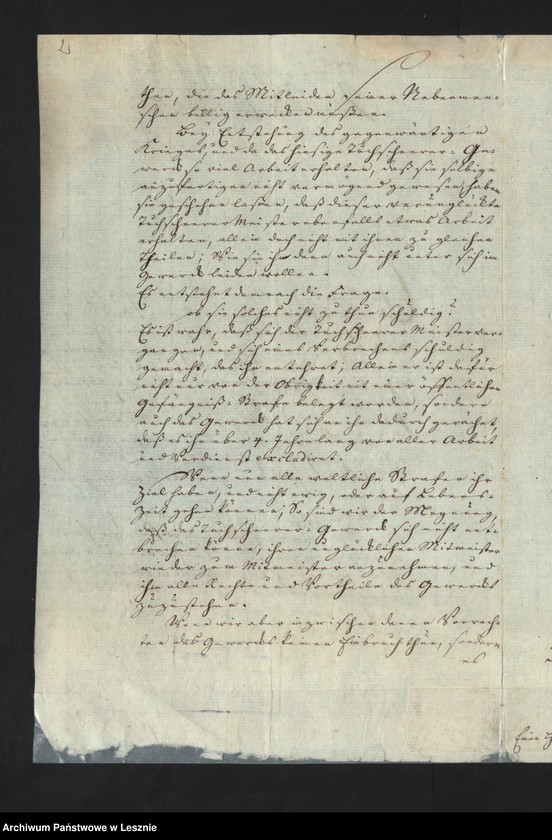 2
then, die das Mitleiden seiner Nebenmen-
schen billig erwecken müssen.
Bey Entstehung des gegenwärtigen
Krieges, und da das hiesige Tuchscheerer-Ge-
werck so viel Arbeit erhalten, daß sie selbige
auszufertigen nicht vermögend gewesen, haben
sie geschehen laßen, daß dieser verunglückte
Tuchscheerer Meister ebenfalls etwas Arbeit
erhalten, allein doch nicht mit ihnen zu gleichen
Theilen; Wie sie ihn denn auch nicht unter sich im
Gewerck leiden wollen.
Es entstehet demnach die Frage:
ob sie solches nicht zu thun schuldig?
Es ist wahr, daß sich der Tuchscheerer Meister ver-
gangen, und sich eines Verbrechens schuldig
gemacht, das ihn entehret; Allein er ist dafür
nicht nur von der Obrigkeit mit einer öffentlichen
Gefängniß-Strafe belegt worden, sondern
auch das Gewerck hat sich an ihn dadurch gerächet,
daß es ihn über 4. Jahre lang von aller Arbeit
und Verdienst excludiret.
Wenn nun alle weltliche Strafen ihr
Ziel haben, und nicht ewig, oder auf Lebens-
Zeit gehen können; So sind wir der Meynung,
daß das Tuchscheerer-Gewerck sich nicht ent-
brechen könne, ihren unglücklichen Mitmeister
wieder zum Mitmeister anzunehmen, und
ihm alle Rechte und Vortheile des Gewercks
zuzustehen.
Wenn wir aber inzwischen denen Vorrech-
ten des Gewercks keinen Einbruch thun, sondern
es
Archiwum Państwowe w Lesznie